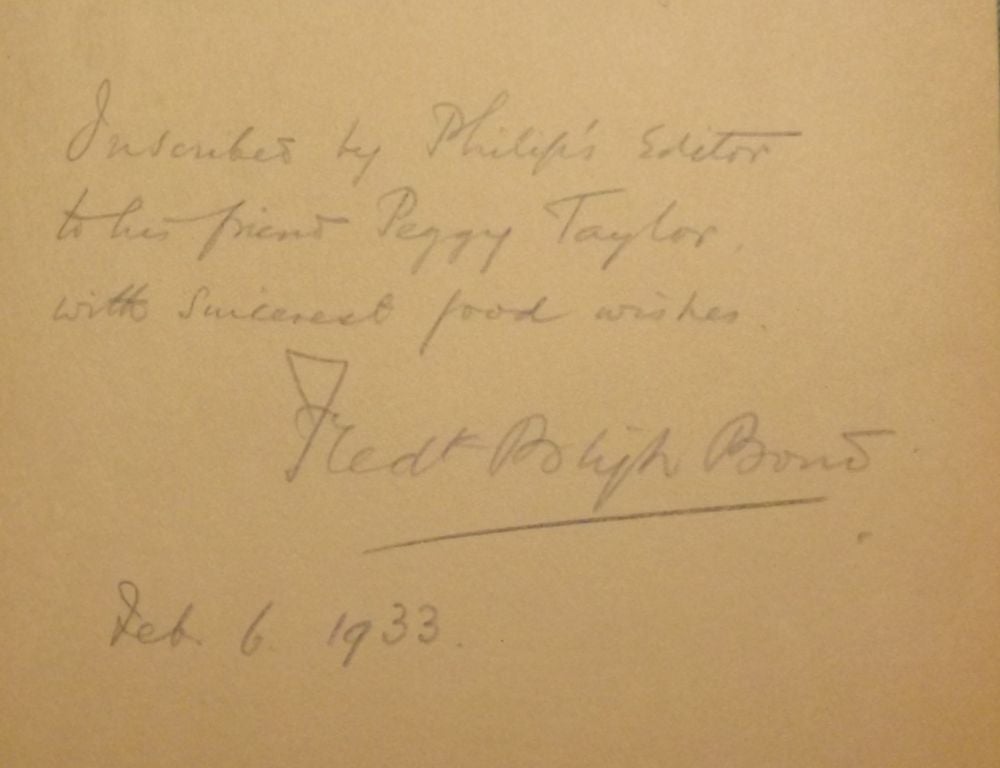 Inscribed by Philip's Editor
to his friend Peggy Taylor,
with sincerest good wishes.
Fredk Bligh Bond
Feb. 6. 1933.